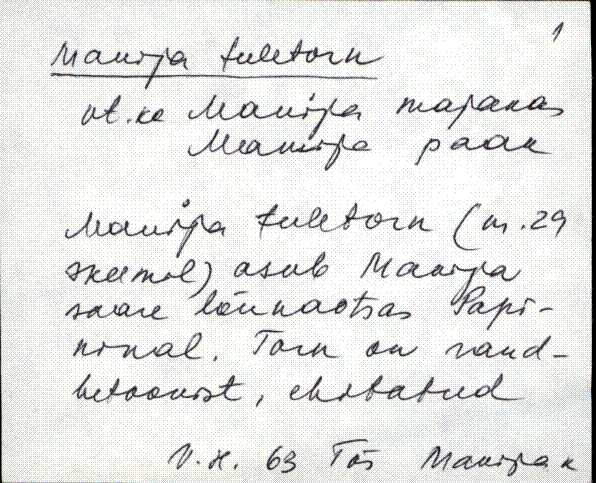 1
Manija tuletorn
vt. ka Manija majakas
Manija paak
Manija tuletorn (nr. 29
skeemil) asub Manija
saare lõunaotsas Papi-
ninal. Torn on raud-
betoonist, ehitatud
V. H. 63 Tõs Manija k